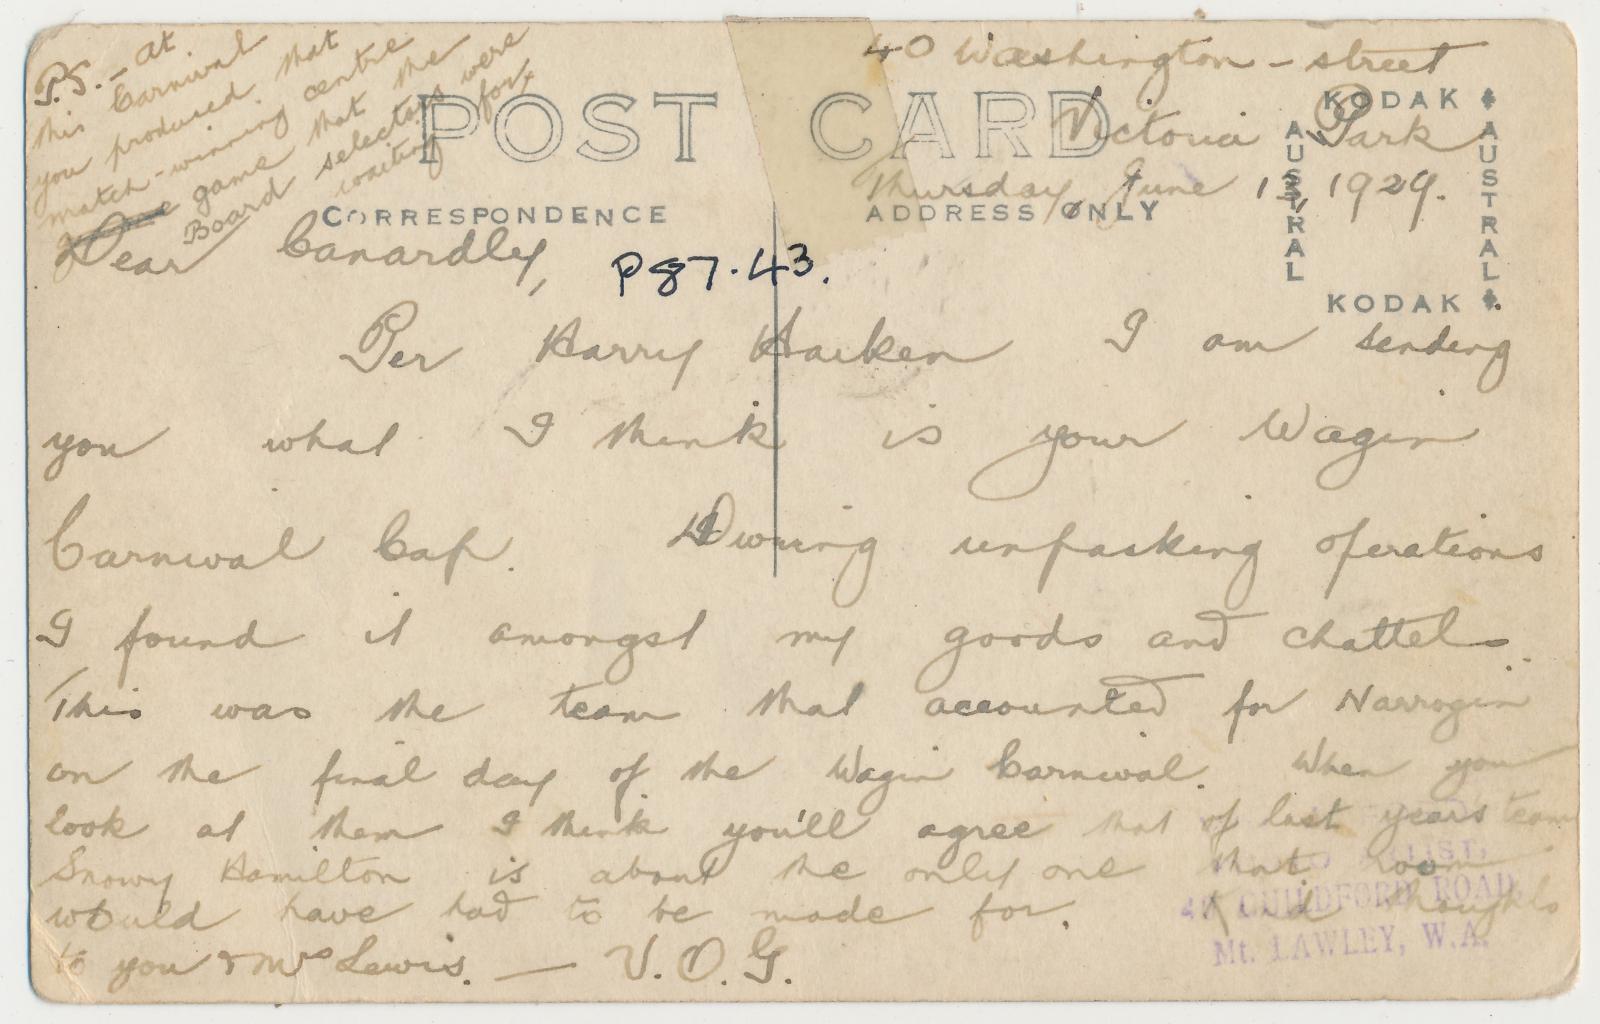 P.S. – At
this Carnival
you produced that
match-winning centre
game that the
Board selectors were
waiting for
40 Washington – street
Victoria Park
Thursday, June 13, 1929.
POST CARD
CORRESPONDENCE
ADDRESS ONLY
KODAK
AUSTRAL
AUSTRAL
KODAK
Dear Canardly,
P87.43.
Per Harry Harken I am sending
you what I think is your Wagin
Carnival Cap. During unpacking operations
I found it amongst my goods and chattels.
This was the team that accounted for Narrogin
on the final day of the Wagin Carnival. When you
look at them I think you'll agree that of last years team
Snowy Hamilton is about the only one that room
would have had to be made for. Kind thoughts
to you & Mrs Lewis. — V.O.G.
ARTIST,
GUILDFORD ROAD
Mt. LAWLEY, W.A.